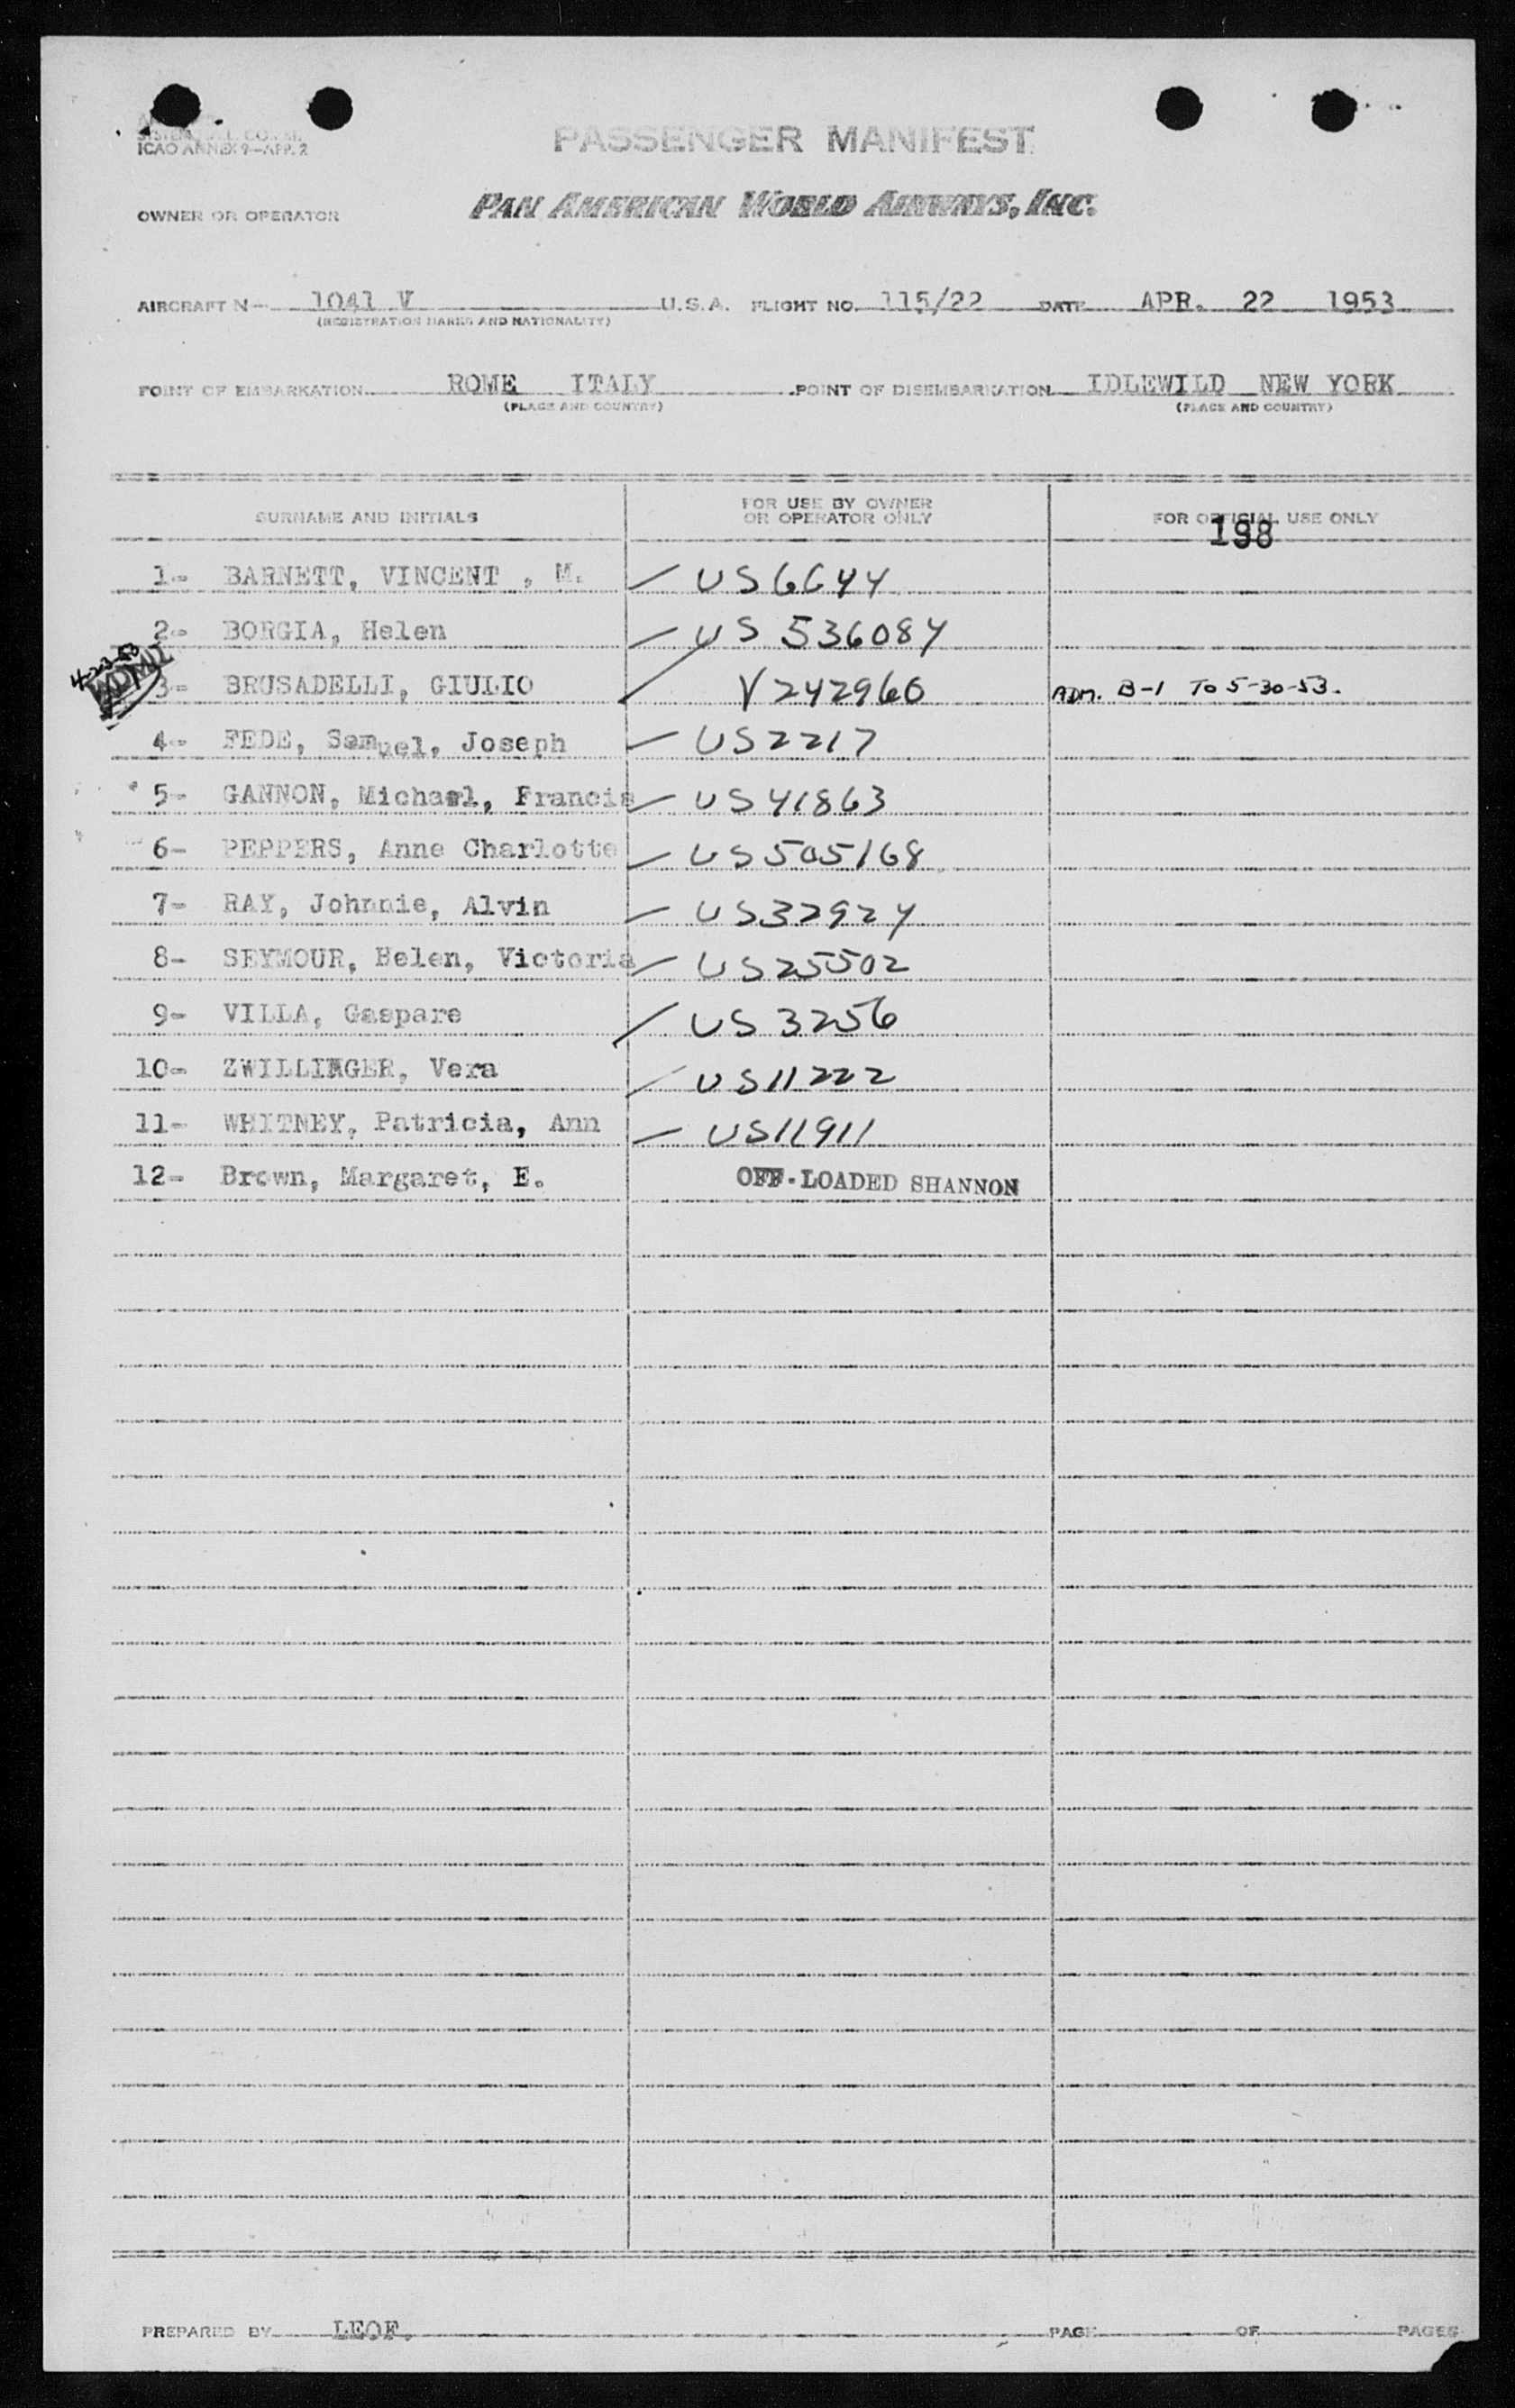 ICAO ANNEX 9—APP. 2
PASSENGER MANIFEST
OWNER OR OPERATOR PAN AMERICAN WORLD AIRWAYS, INC.
AIRCRAFT N— 1041 V U.S.A. FLIGHT NO. 115/22 DATE APR. 22 1953
(REGISTRATION MARKS AND NATIONALITY)
POINT OF EMBARKATION ROME ITALY POINT OF DISEMBARKATION IDLEWILD NEW YORK
(PLACE AND COUNTRY) (PLACE AND COUNTRY)
SURNAME AND INITIALS FOR USE BY OWNER OR OPERATOR ONLY FOR OFFICIAL USE ONLY
198
1- BARNETT, VINCENT , M. US6644
2- BORGIA, Helen US 536084
4-23-53
3- BRUSADELLI, GIULIO V242960 ADM. B-1 TO 5-30-53.
4- FEDE, Samuel, Joseph US2217
5- GANNON, Michael, Francis US41863
6- PEPPERS, Anne Charlotte US505168
7- RAY, Johnnie, Alvin US32924
8- SEYMOUR, Helen, Victoria US25502
9- VILLA, Gaspare US3256
10- ZWILLINGER, Vera US11222
11- WHITNEY, Patricia, Ann US11911
12- Brown, Margaret, E. OFF-LOADED SHANNON
PREPARED BY LEOF. PAGE OF PAGES